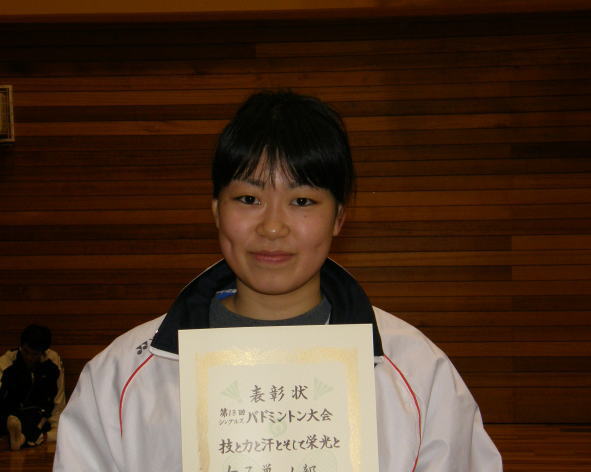 表彰状
第18回
シングルス バドミントン大会
技と力と汗とそして栄光と